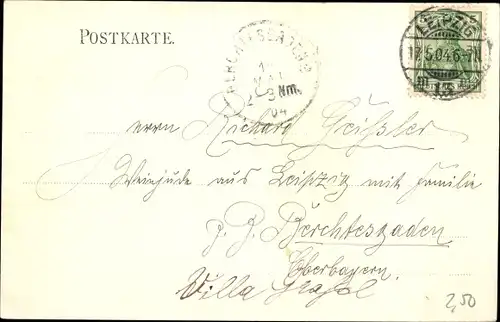 POSTKARTE.
LEIPZIG
17.5.04.6-7N.
BERCHTESGADEN
MAI
Nm.
04
Herrn Richard Geißler
Weinjude aus Leipzig mit Familie
z. Z. Berchtesgaden
Oberbayern.
Villa
2,50